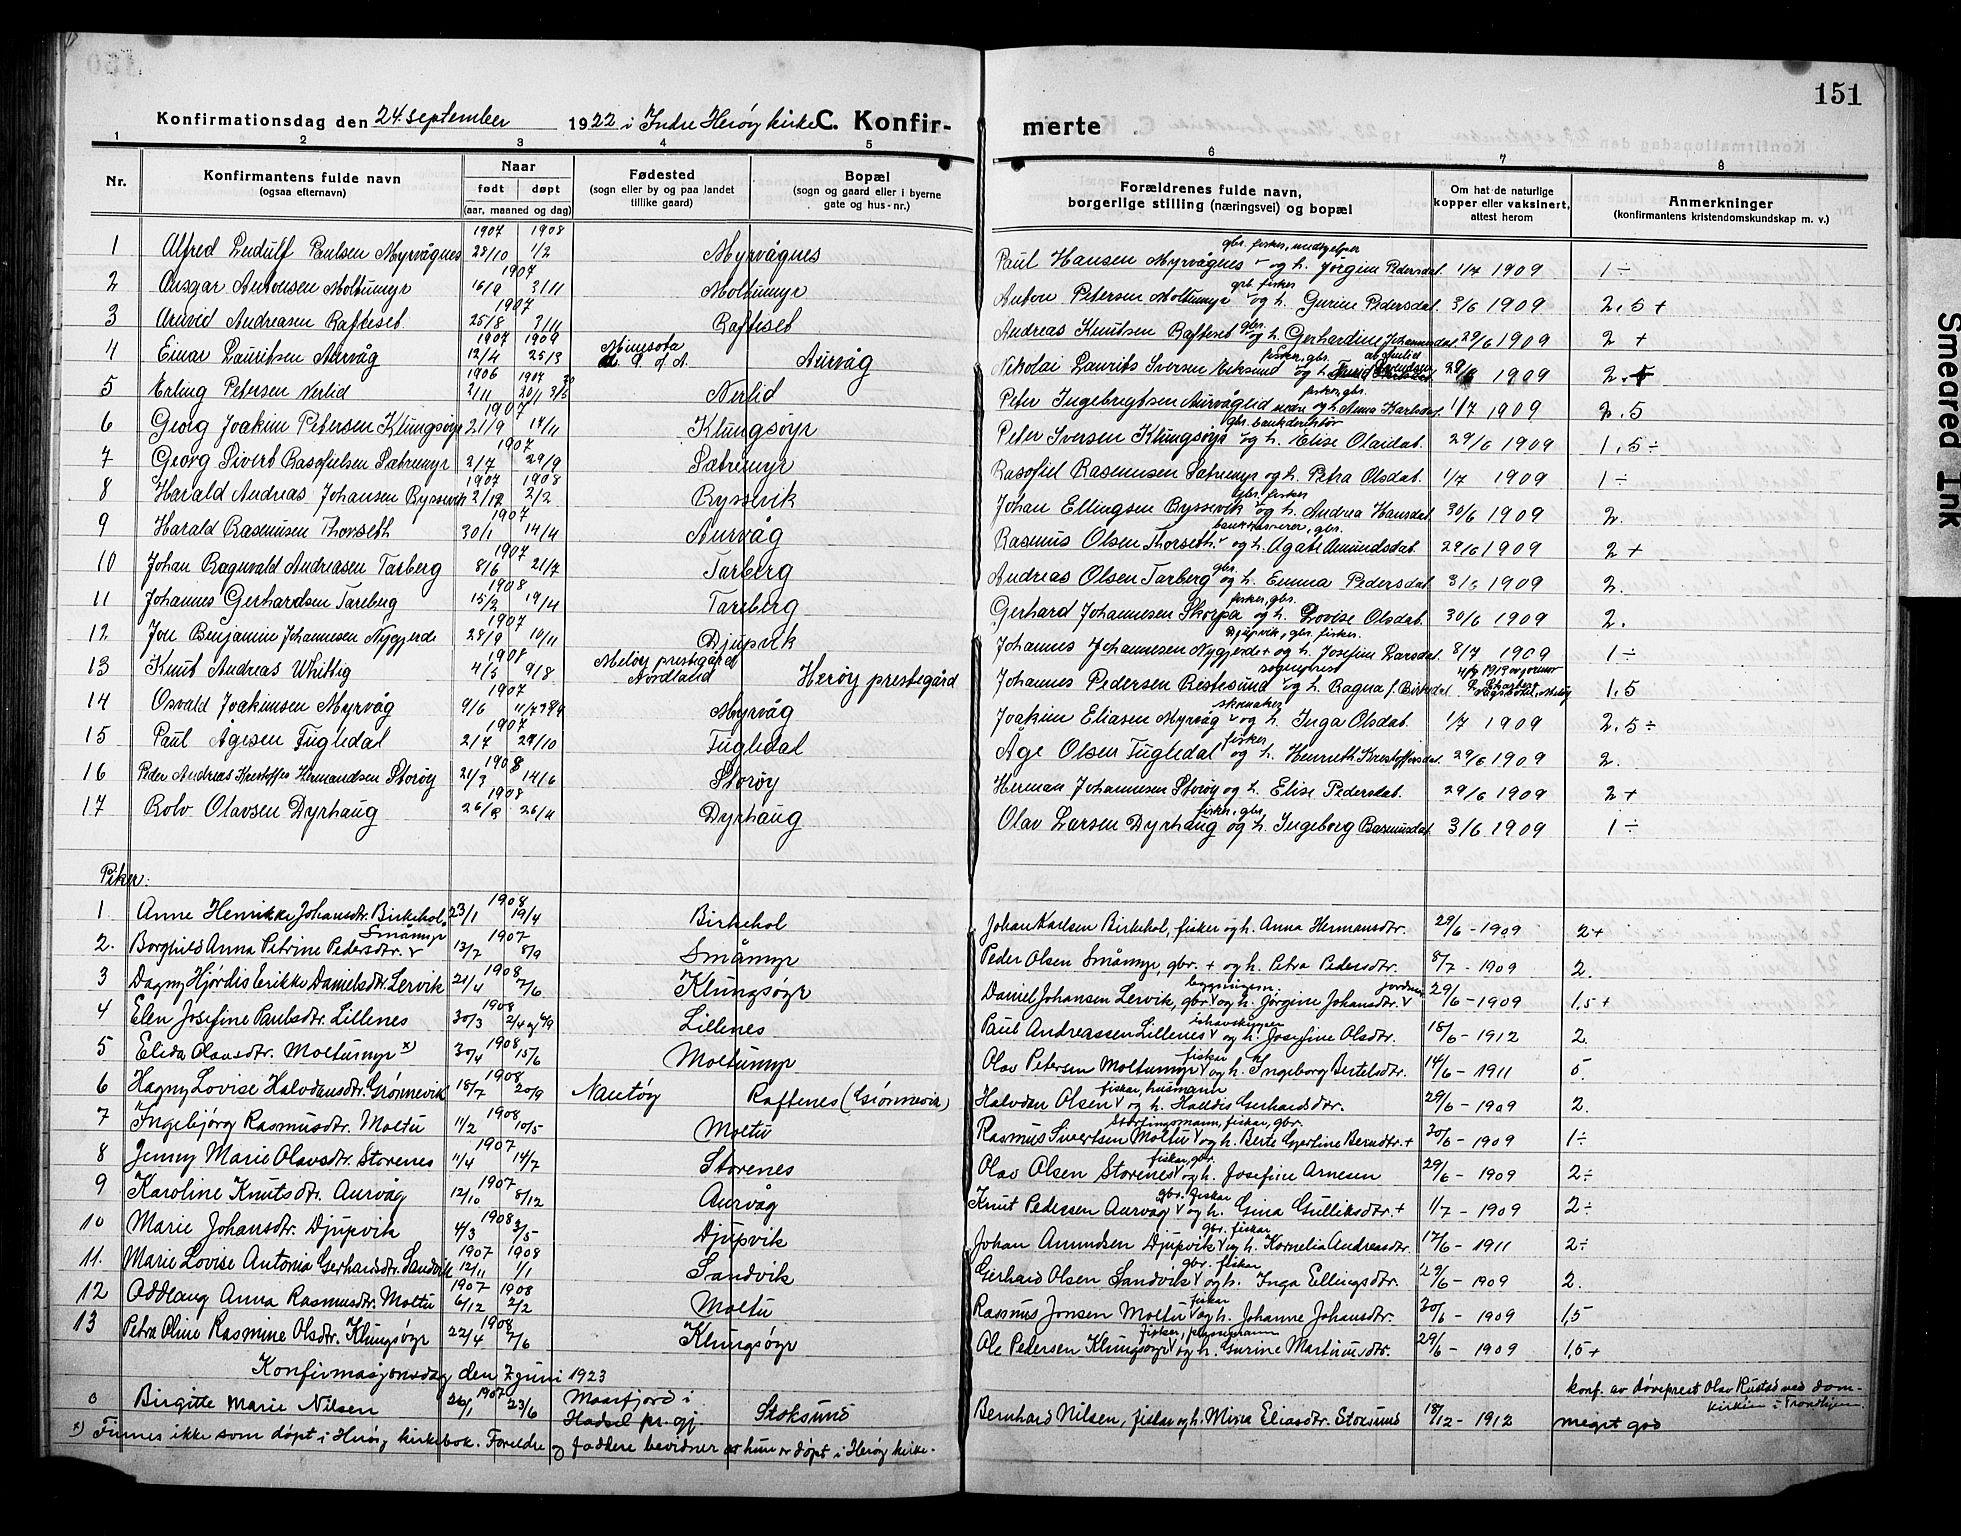 151
Konfirmationsdag den 24. september 1922 i Indre Herøy kirke C. Konfir- merte
1 2 3 4 5 6 7 8
Nr. Konfirmantens fulde navn (ogsaa efternavn) Naar født døpt (aar, maaned og dag) Fødested (sogn eller by og paa landet tillike gaard) Bopæl (sogn og gaard eller i byerne gate og hus-nr.) Forældrenes fulde navn, borgerlige stilling (næringsvei) og bopæl Om hat de naturlige kopper eller vaksinert, attest herom Anmerkninger (konfirmantens kristendomskundskap m. v.)
1 Alfred Ludulf Paulsen Myrvågnes 1907 28/10 1908 1/2 Myrvågnes Paul Hansen Myrvågnes og h. Jørgine Pedersdat. 1/7 1909 1 ÷
2 Ansgar Antonsen Moltumyr 1907 16/9 3/11 Moltumyr Anton Petersen Moltumyr gbr. fisker og h. Gurine Pedersdat. 3/6 1909 2,5 +
3 Arnvid Andreasen Rafteset 1907 25/8 3/11 Rafteset Andreas Knutsen Rafteset gbr. og h. Gerhardine Johannesdat. 29/6 1909 2 +
4 Einar Lauritsen Aurvåg 1907 12/4 1909 25/3 Minesota Aurvåg Nikolai Laurits Iversen Eiksund fisker, gbr. og h. 29/6 1909 2.
5 Erling Petersen Nerlid 1906 2/11 1907 20/1 Nerlid Peter Ingebrigtsen Aurvåglid nedre fisker, gbr. og h. Anna Karlsdat. 1/7 1909 2.5
6 Georg Joakim Petersen Klungsøyr 1907 21/9 14/11 Klungsøyr Peter Iversen Klungsøyr gbr. bankdirektør og h. Elise Olaidat. 29/6 1909 1,5 ÷
7 Georg Sivert Rasofielsen Sætremyr 1907 2/7 29/9 Sætremyr Rasofiel Rasmussen Sætremyr og h. Petra Olsdat. 1/7 1909 1 ÷
8 Harald Andreas Johansen Ryssevik 1907 2/12 1908 2/2 Ryssevik Johan Ellingsen Ryssevik gbr. fisker og h. Andrea Hansdat. 30/6 1909 2.
9 Harald Rasmusen Thorseth 1907 30/1 14/4 Aurvåg Rasmus Olsen Thorseth bankkasserer, gbr. og h. Agate Amundsdat. 29/6 1909 2 +
10 Johan Ragnvald Andreasen Tarberg 1907 8/6 21/7 Tarberg Andreas Olsen Tarberg gbr. og h. Emma Pedersdat. 3/6 1909 2.
11 Johannes Gerhardsen Tareberg 1908 15/2 19/4 Tareberg Gerhard Johannesen Skorpa fisker, gbr. og h. Lovise Olsdat. 30/6 1909 2.
12 Jon Benjamin Johannesen Nygjerde 1907 28/9 10/11 Djupvik Johannes Johannesen Nygjerde + Djupvik, gbr. fisker. og h. Josefine Larsdat. 8/7 1909 1 ÷
13 Knut Andreas Whittig 1908 4/5 9/8 Meløy prestegård Nordland Herøy prestegård Johannes Pedersen Ristesund sogneprest og h. Ragna f. Birkedal 1,5
14 Osvald Joakimsen Myrvåg 1907 9/6 Myrvåg Joakim Eliasen Myrvåg skomaker og h. Inga Olsdat. 1/7 1909 2.5 ÷
15 Paul Ågesen Fugledal 1907 2/7 29/10 Fugledal Åge Olsen Fugledal fisker og h. Henreth Krestoffersdat. 29/6 1909 2.
16 Peder Andreas Krestoffer Hermandsen Storøy 1908 21/3 14/6 Storøy Herman Johannesen Storøy og h. Elise Pedersdat. 29/6 1909 2 +
17 Rolv Olavsen Dyrhaug 1908 26/4 Dyrhaug Olav Larsen Dyrhaug fisker, gbr. og h. Ingeborg Rasmusdat. 3/6 1909 1 ÷
Piker:
1 Anne Henrikke Johansdtr. Birkehol 1908 23/1 19/4 Birkehol Johan Karlsen Birkehol, fisker og h. Anna Hermansdtr. 29/6 - 1909 2+
2. Borghild Anna Petrine Pedersdtr. Småmyr 1907 13/7 8/9 Småmyr Peder Olsen Småmyr, gbr. + og h. Petra Pedersdtr. 8/7 - 1909 2.
3 Dagny Hjørdis Erikke Danielsdtr. Lervik 1908 21/4 7/6 Klungsøyr Daniel Johansen Lervik, gbr. og h. Jørgine Johansdtr. 29/6 - 1909 1,5 +
4 Elen Josefine Paulsdtr. Lillenes 30/3 Lillenes Paul Andreassen Lillenes ishavskipper og h. Josefine Olsdtr. 18/6 - 1912 2.
5 Elida Olavsdtr. Moltumyr x) 1908 30/4 15/6 Moltumyr Olav Petersen Moltumyr fiskar og h. Ingeborg Bertelsdtr. 14/6 - 1911 5.
6 Hagny Lovise Halvdansdtr. Grønnevik 1908 18/7 20/9 Nautøy Raftenes (Grønnevik) Halvdan Olsen fiskar, husmann og h. Halldis Gerhardsdtr. 29/6 - 1909 2.
7 Ingebjørg Rasmusdtr. Moltu 1908 11/2 10/5 Moltu Rasmus Sivertsen Moltu Stortingsmann, fiskar, gbr. og h. Berte Gjertine Berndtr. + 30/6 - 1909 1÷
8 Jenny Marie Olavsdtr. Storenes 1907 11/4 14/7 Storenes Olav Olsen Storenes fiskar, gbr. og h. Josefine Arnesen 29/6 - 1909 2÷
9 Karoline Knutsdtr. Aurvåg 1907 12/10 8/12 Aurvåg Knut Pedersen Aurvåg gbr. fiskar og h. Gina Gulliksdtr. + 1/7 - 1909 2÷
10 Marie Johansdtr. Djupvik 1908 4/3 3/5 Djupvik Johan Amundsen Djupvik gbr. fiskar og h. Kornelia Andreasdtr. 17/6 - 1911 2÷
11. Marie Lovise Antonia Gerhardsdtr. Sandvik 1907 12/11 1908 1/1 Sandvik Gerhard Olsen Sandvik gbr. fiskar og h. Inga Ellingsdtr. 29/6 - 1909 2.
12 Oddlaug Anna Rasmusdtr. Moltu 1907 6/12 1908 2/2 Moltu Rasmus Jonsen Moltu fiskar og h. Johanne Johansdtr. 30/6 - 1909 1,5
13 Petra Oline Rasmine Olsdtr. Klungsøyr 1908 22/4 7/6 Klungsøyr Ole Pedersen Klungsøyr fisker, og h. Gurine Martinusdtr. 29/6 - 1909 1,5+
Konfirmasjonsdag den 7 juni 1923
0 Birgitte Marie Nilsen 1907 26/1 23/6 Maasfjord i Hadsel pr.gj. Stoksund Bernhard Nilsen, fiskar og h. Mina Eliasdtr. Stoksund 18/12 - 1912 konf. av døveprest Olav Rustad ved domkirkien i Trondhjem. meget god
x) Finnes ikke som døpt i Herøy kirkebok. Foreldre og faddere bevidner at hun er døpt i Herøy kirke.
Smeared Ink